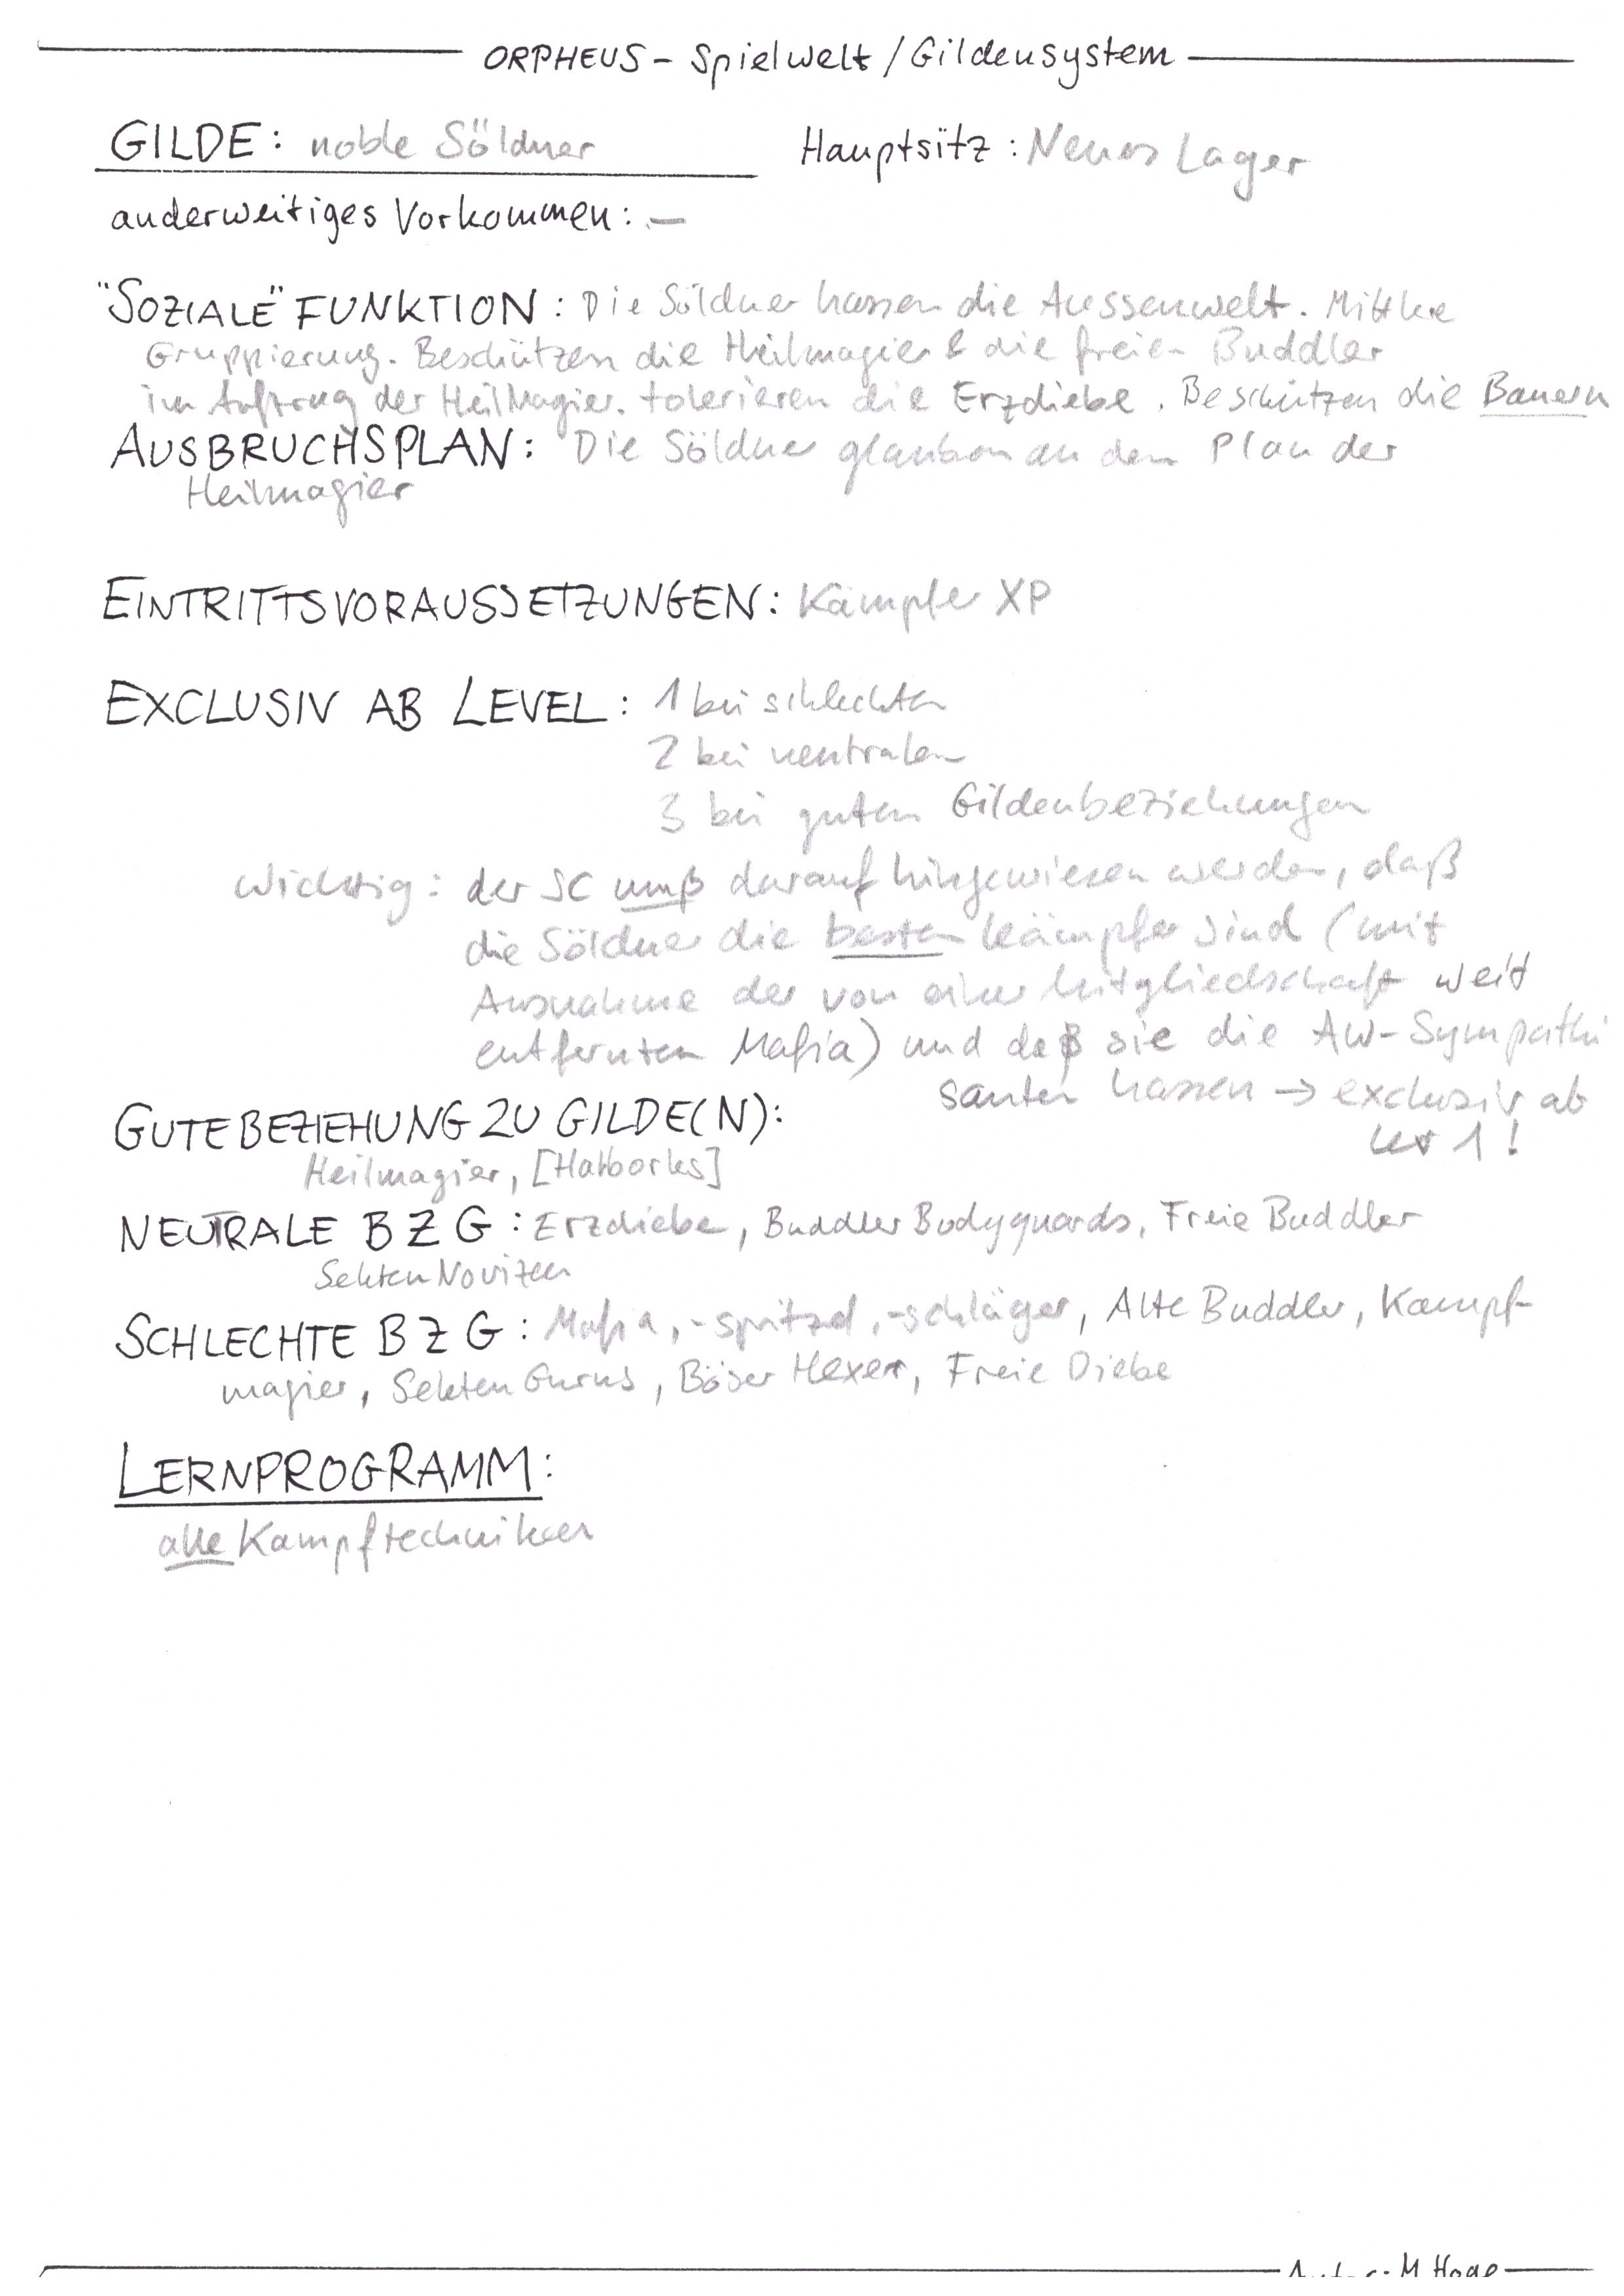 ORPHEUS - Spielwelt / Gildensystem
GILDE: noble Söldner Hauptsitz: Neues Lager
anderweitiges Vorkommen: —
"SOZIALE" FUNKTION: Die Söldner hassen die Aussenwelt. Mittlere
Gruppierung. Beschützen die Heilmagier & die freien Buddler
im Auftrag der Heilmagier. tolerieren die Erzdiebe. Beschützen die Bauern
AUSBRUCHSPLAN: Die Söldner glauben an den Plan der
Heilmagier
EINTRITTSVORAUSSETZUNGEN: Kämpfer XP
EXCLUSIV AB LEVEL: 1 bei schlechten
2 bei neutralen
3 bei guten Gildenbeziehungen
Wichtig: der SC muß darauf hingewiesen werden, daß
die Söldner die besten Kämpfer sind (mit
Ausnahme der von einer Mitgliedschaft weit
entfernten Mafia) und daß sie die AW-Sympathi
santen hassen → exclusiv ab
1!
GUTE BEZIEHUNG ZU GILDE(N):
Heilmagier, [Halborks]
NEUTRALE BZG: Erzdiebe, Buddler Bodyguards, Freie Buddler
Sekten Novizen
SCHLECHTE BZG: Mafia, -spitzel, -schläger, Alte Buddler, Kampf-
magier, Sekten Gurus, Böser Hexer, Freie Diebe
LERNPROGRAMM:
alle Kampftechniken
Autor: M. Hoge